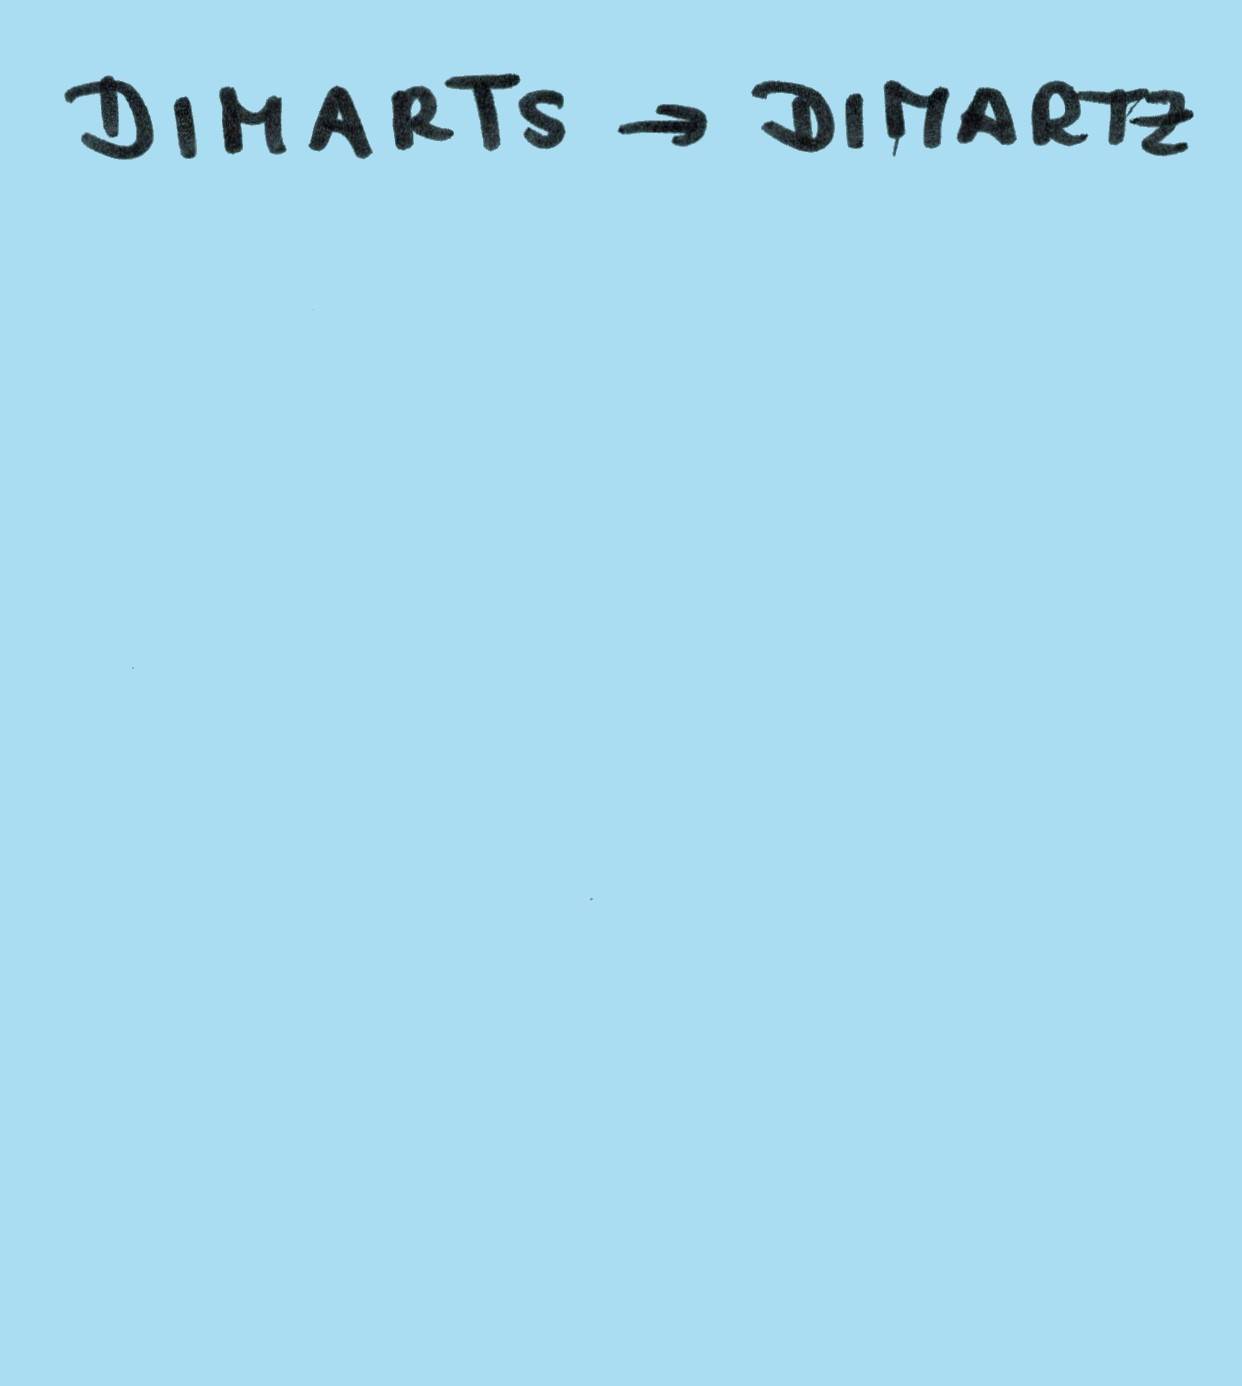 DIMARTS → DIMARTZ